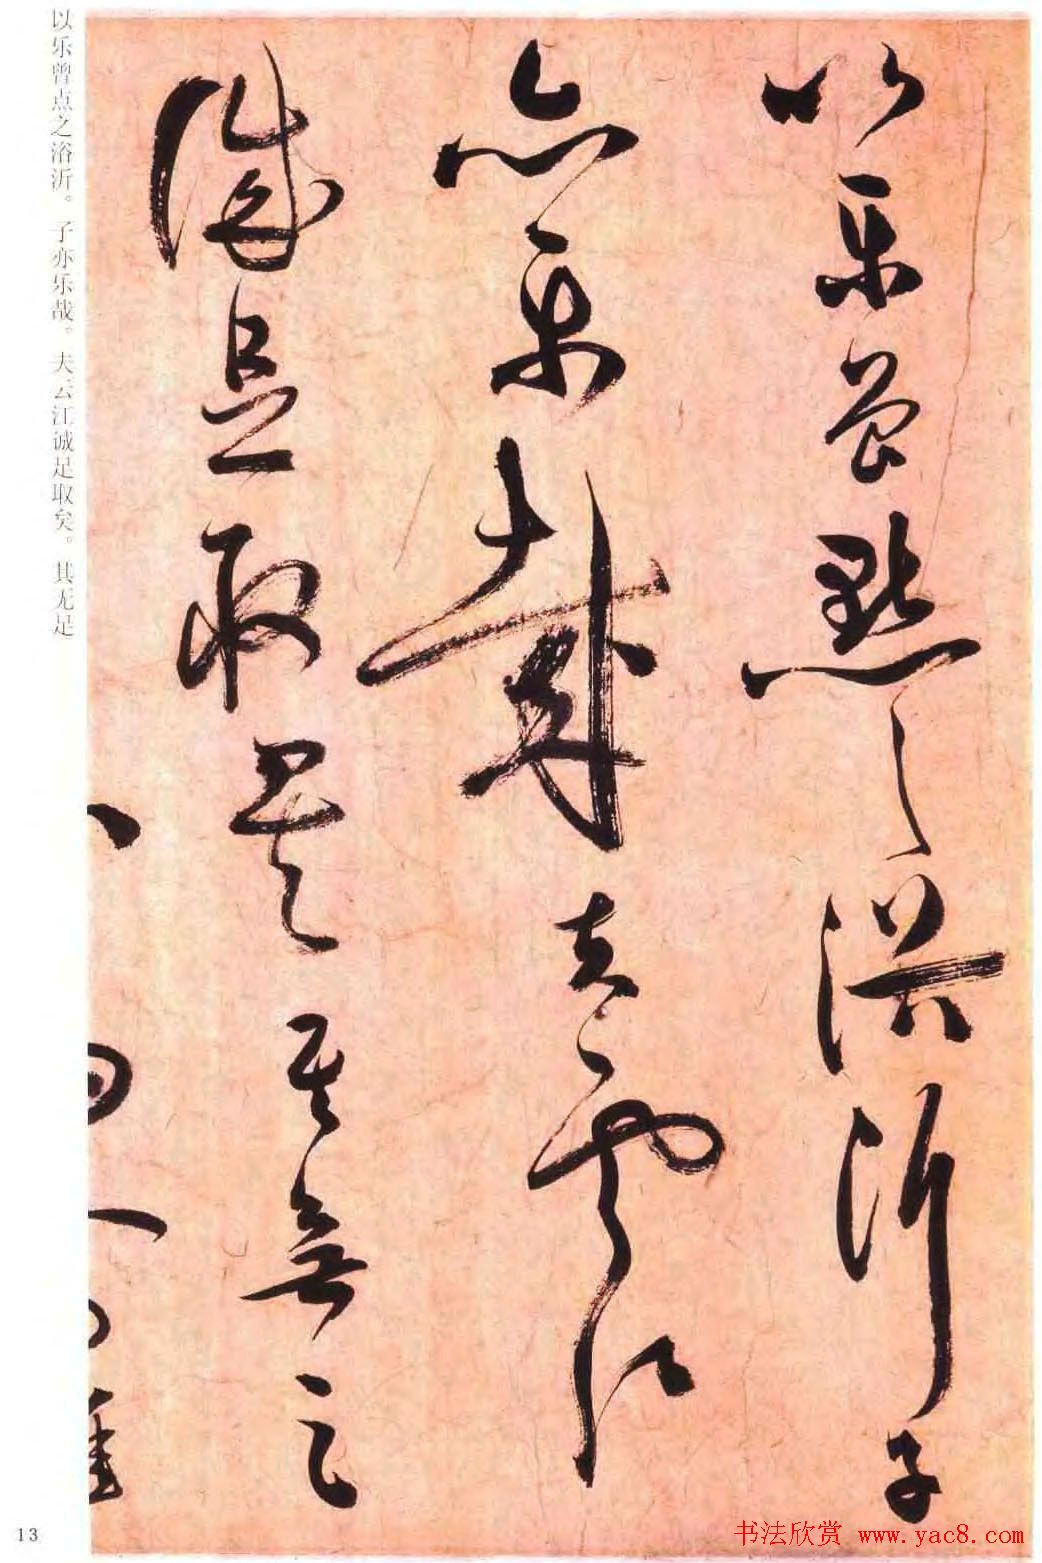 以樂曾點之浴沂子
亦樂哉夫雲江
誠足取矣其無足
以乐曾点之浴沂。子亦乐哉。夫云江诚足取矣。其无足
13
书法欣赏 www.yac8.com